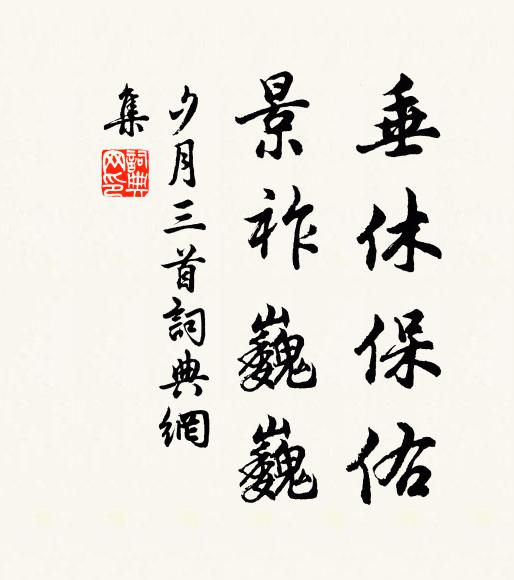 垂休保佑
景祚巍巍
夕月三首詞典網
集
詞典网印